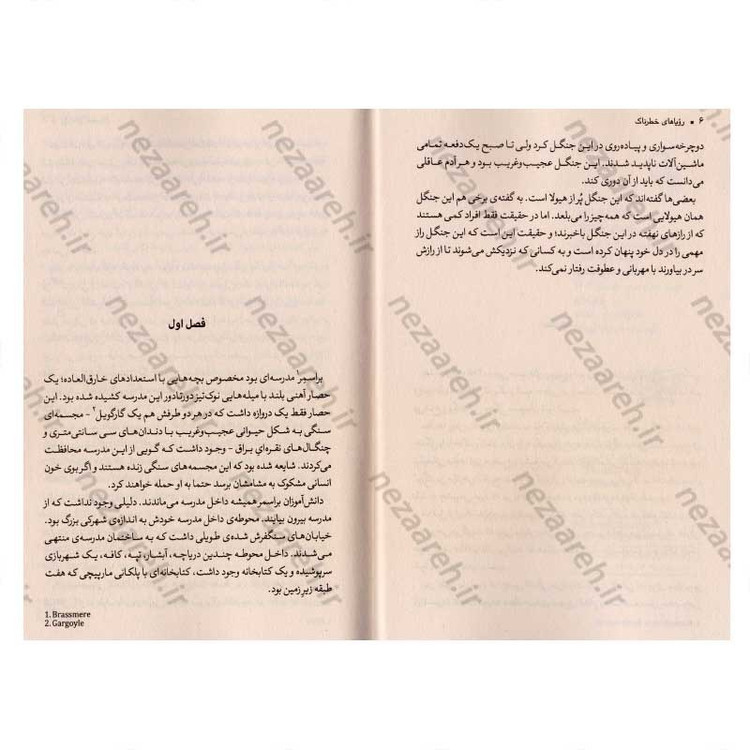 ۶ ▪ رؤیاهای خطرناک
دوچرخه‌سواری و پیاده‌روی در این جنگل کرد ولی تا صبح یک‌دفعه تمامی
ماشین‌آلات ناپدید شدند. این جنگل عجیب‌وغریب بود و هر آدم عاقلی
می‌دانست که باید از آن دوری کند.
بعضی‌ها گفته‌اند که این جنگل پُر از هیولا است. به گفته‌ی برخی هم این جنگل
همان هیولایی است که همه‌چیز را می‌بلعد. اما در حقیقت فقط افراد کمی هستند
که از رازهای نهفته در این جنگل باخبرند؛ و حقیقت این است که این جنگل راز
مهمی را در دل خود پنهان کرده است و به کسانی که نزدیکش می‌شوند تا از رازش
سر در بیاورند با مهربانی و عطوفت رفتار نمی‌کند.
فصل اول
براسمر۱ مدرسه‌ای بود مخصوص بچه‌هایی با استعدادهای خارق‌العاده؛ یک
حصار آهنی بلند با میله‌هایی نوک‌تیز دورتادور این مدرسه کشیده شده بود. این
حصار فقط یک دروازه داشت که در هر دو طرفش هم یک گارگویل۲ - مجسمه‌ای
سنگی به شکل حیوانی عجیب‌وغریب با دندان‌های سی سانتی‌متری و
چنگال‌های نقره‌ای براق - وجود داشت که گویی از این مدرسه محافظت
می‌کردند. شایعه شده بود که این مجسمه‌های سنگی زنده هستند و اگر بوی خون
انسانی مشکوک به مشامشان برسد حتما به او حمله خواهند کرد.
دانش‌آموزان براسمر همیشه داخل مدرسه می‌ماندند. دلیلی وجود نداشت که از
مدرسه بیرون بیایند. محوطه‌ی داخل مدرسه خودش به اندازه‌ی شهرکی بزرگ بود.
خیابان‌های سنگفرش شده‌ی طویلی داشت که به ساختمان مدرسه‌ی منتهی
می‌شدند. داخل محوطه چندین دریاچه، آبشار، تپه، کافه، یک شهربازی
سرپوشیده و یک کتابخانه وجود داشت، کتابخانه‌ای با پلکانی مارپیچی که هفت
طبقه زیر زمین بود.
1. Brassmere
2. Gargoyle
nezaareh.ir
nezaareh.ir
nezaareh.ir
nezaareh.ir
nezaareh.ir
nezaareh.ir
nezaareh.ir
nezaareh.ir
nezaareh.ir
nezaareh.ir
nezaareh.ir
nezaareh.ir